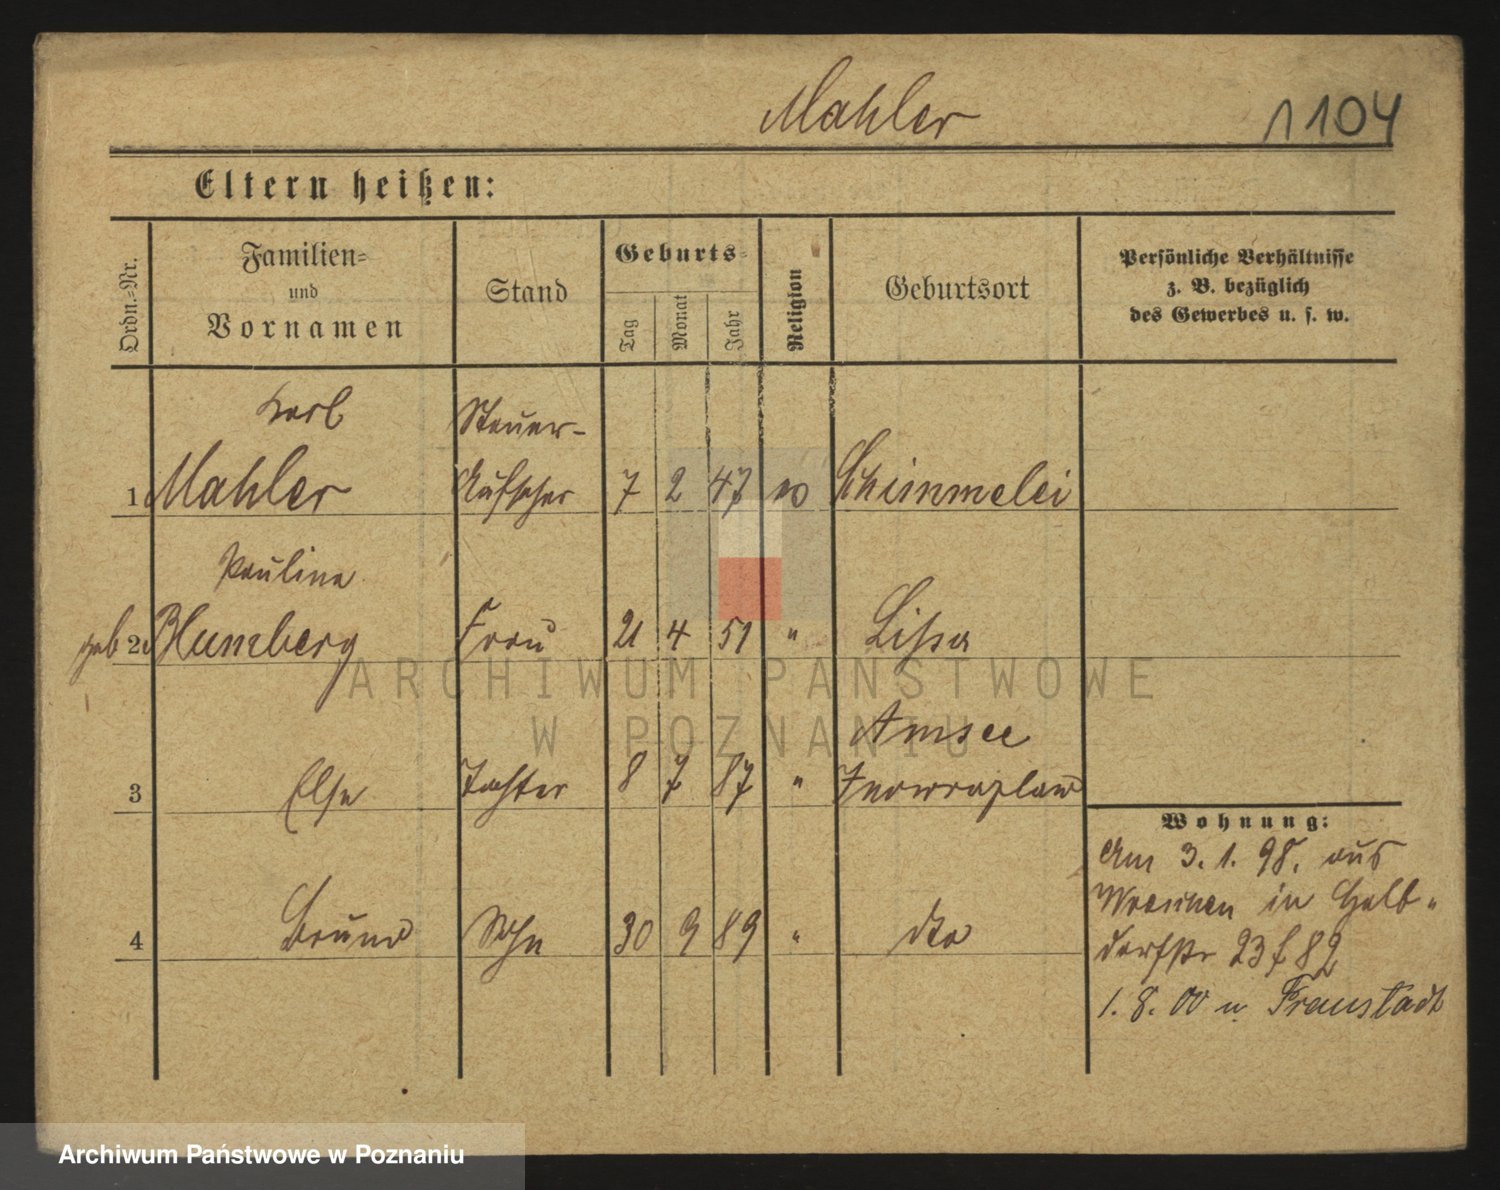 Mahler
1104
Eltern heißen:
Ordn.-Nr.
Familien-
und
Vornamen
Stand
Geburts-
Tag
Monat
Jahr
Religion
Geburtsort
Persönliche Verhältnisse
z. B. bezüglich
des Gewerbes u. s. w.
Karl Steuer-
1 Mahler Aufseher 7 2 47 ev Schimmelei
Pauline
geb 2 Blumberg Frau 21 4 51 " Lissa
Amsee
3 Else Tochter 8 7 87 " Inowrazlaw
4 Bruno Sohn 30 9 89 " dto
Wohnung:
Am 3. 1. 98. aus
in Halb-
dorfstr 23 f 82
1. 8. 00 n. Fraustadt
ARCHIWUM PAŃSTWOWE
W POZNANIU
Archiwum Państwowe w Poznaniu